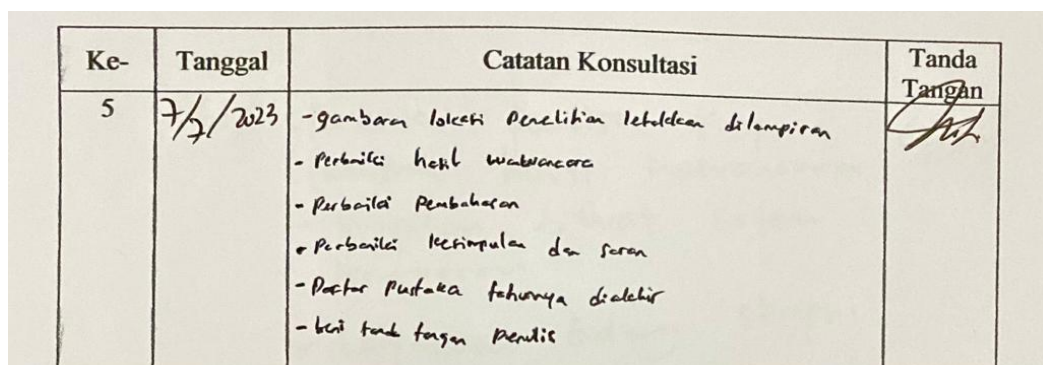 Ke- Tanggal Catatan Konsultasi Tanda Tangan
5 7/7/2023 - gambaran lokasi penelitian letakkan dilampiran
- Perbaiki hasil wawancara
- Perbaiki Pembahasan
- Perbaiki kesimpulan dan saran
- Daftar Pustaka tahunnya diakhir
- beri tanda tangan penulis